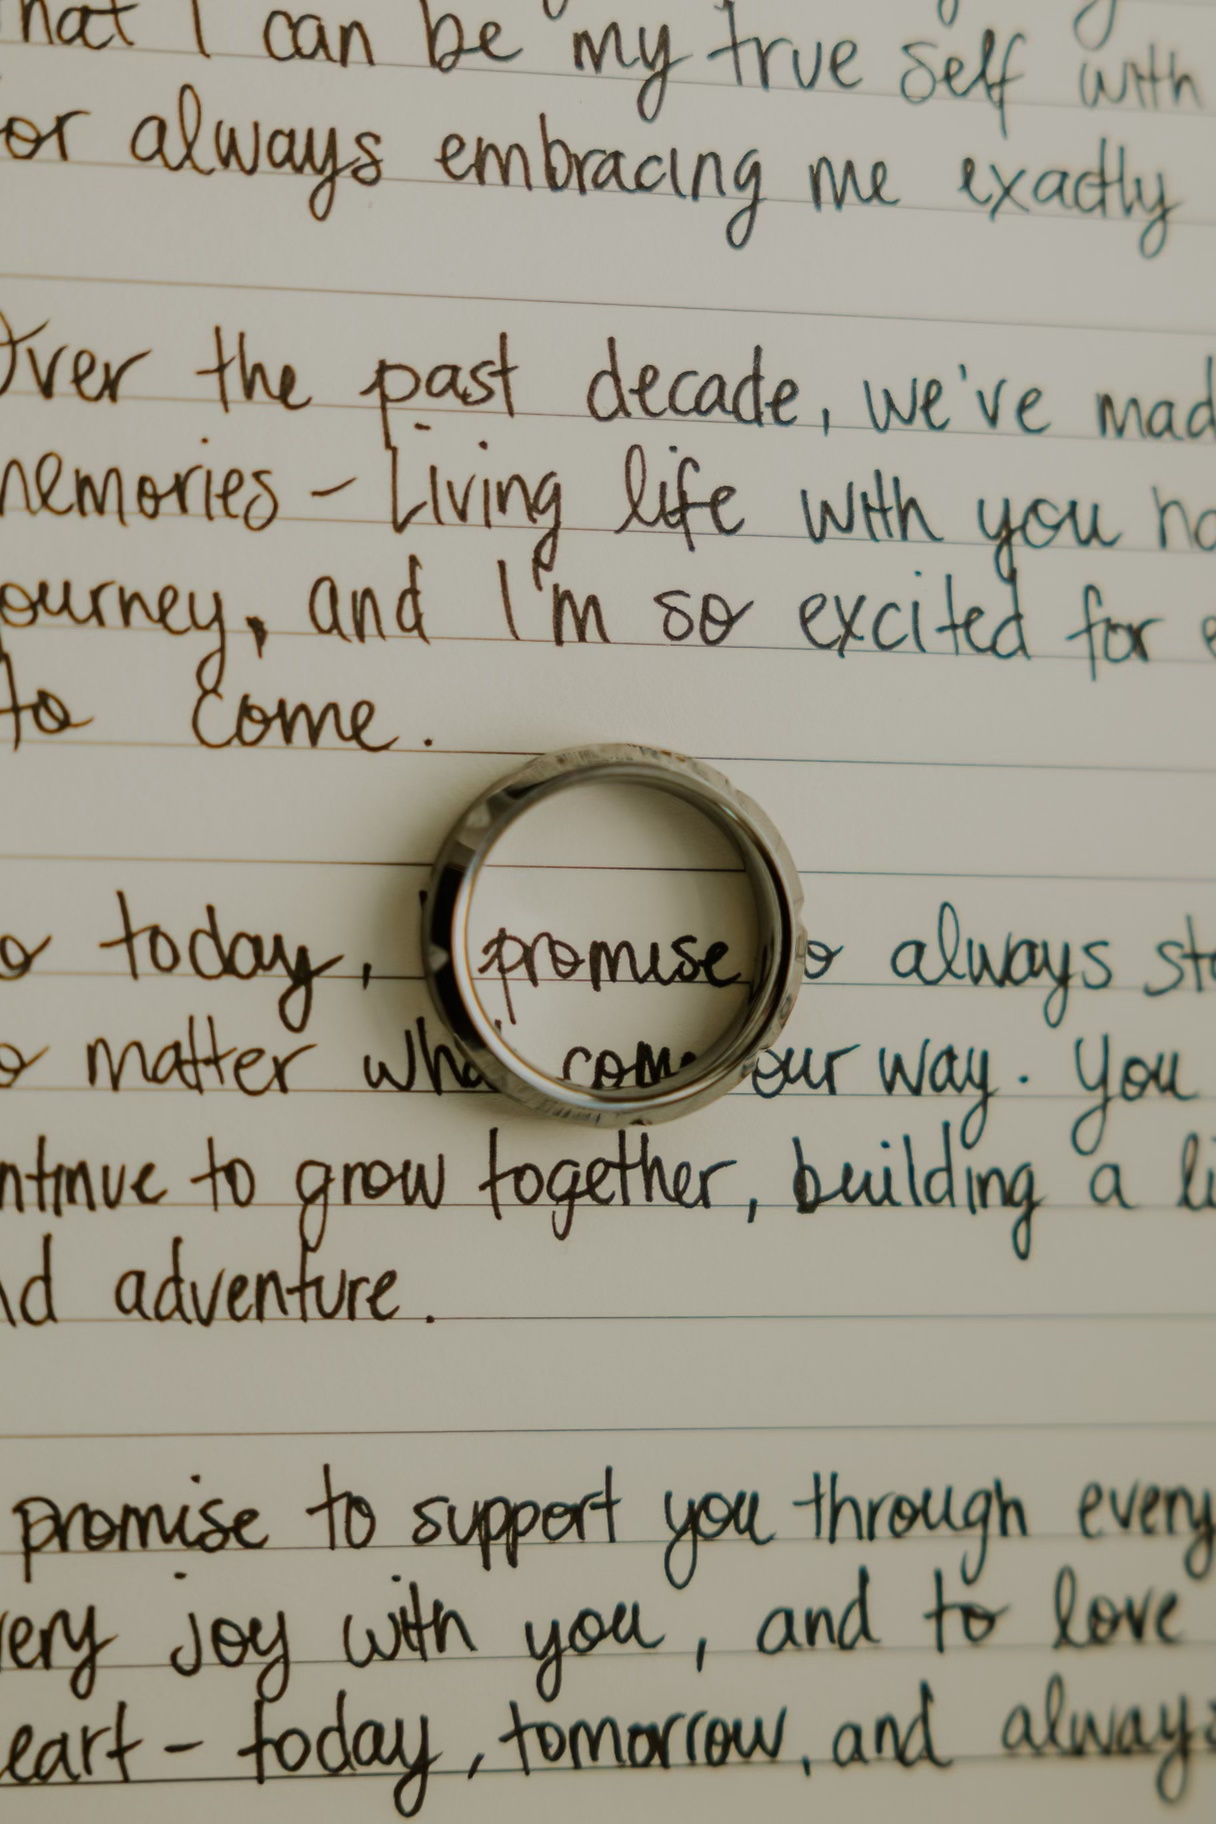 hat I can be my true self with
or always embracing me exactly
Over the past decade, we've mad
memories - Living life with you ha
ourney, and I'm so excited for e
to come.
o today, I promise to always sta
o matter what comes our way. You
ntinue to grow together, building a li
nd adventure.
promise to support you through every
very joy with you, and to love
eart - today, tomorrow, and always